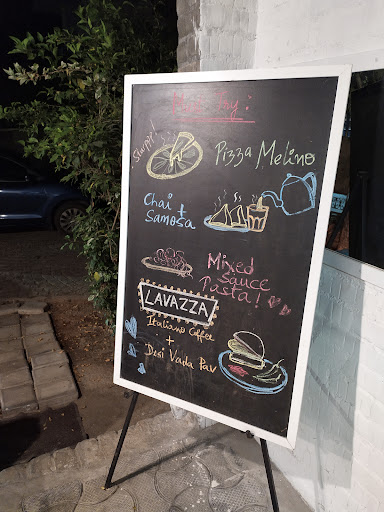 Must Try:
Slurpp!
Pizza Melino
Chai +
Samosa
Mixed
Sauce
Pasta!
LAVAZZA
Italiano Coffee
+
Desi Vada Pav